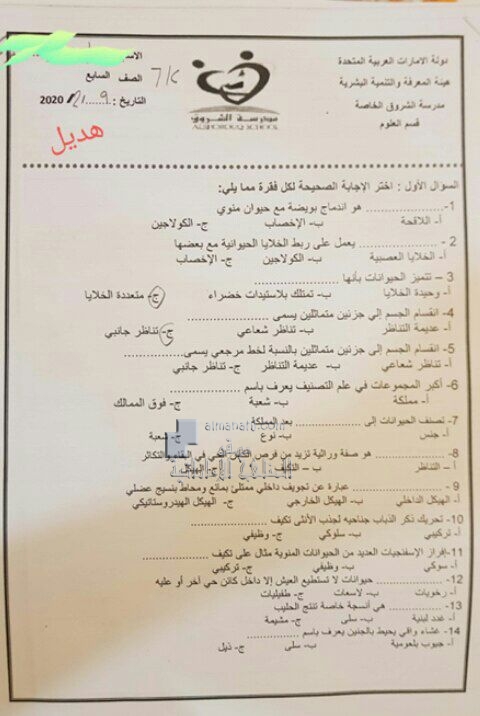 دولة الامارات العربية المتحدة
هيئة المعرفة والتنمية البشرية
مدرسة الشروق الخاصة
قسم العلوم
مدرسة الشروق
ALSHOROOQ SCHOOL
الصف السابع 7/ك
التاريخ : 9......./21 2020
هديل
السوال الأول : اختر الإجابة الصحيحة لكل فقرة مما يلي:
1- .................. هو اندماج بويضة مع حيوان منوي
أ- اللاقحة ب- الإخصاب ج- الكولاجين
2 - .................. يعمل على ربط الخلايا الحيوانية مع بعضها
أ- الخلايا العصبية ب- الكولاجين ج- الإخصاب
3 – تتميز الحيوانات بأنها ..................
أ- وحيدة الخلايا ب- تمتلك بلاستيدات خضراء ج- متعددة الخلايا
4- انقسام الجسم إلى جزئين متماثلين يسمى ..................
أ- عديمة التناظر ب- تناظر شعاعي ج- تناظر جانبي
5- انقسام الجسم إلى جزئين متماثلين بالنسبة لخط مرجعي يسمى..................
أ- تناظر شعاعي ب- عديمة التناظر ج- تناظر جانبي
6- أكبر المجموعات في علم التصنيف يعرف باسم ..................
أ- مملكة ب- شعبة ج- فوق الممالك
7- تصنف الحيوانات إلى .................. بعد المملكة
أ- جنس ب- نوع ج- شعبة
almanahj.com
8- .................. هو صفة وراثية تزيد من فرص الكائن الحي في البقاء والتكاثر
أ – التناظر ب – التكيف ج- الهيكل
9 - .................. عبارة عن تجويف داخلي ممتلئ بمائع ومحاط بنسيج عضلي
أ- الهيكل الداخلي ب- الهيكل الخارجي ج- الهيكل الهيدروستاتيكي
10- تحريك ذكر الذباب جناحيه لجذب الأنثى تكيف ..................
أ- تركيبي ب- سلوكي ج- وظيفي
11- إفراز الإسفنجيات العديد من الحيوانات المنوية مثال على تكيف ..................
أ- سوكي ب- وظيفي ج- تركيبي
12- .................. حيوانات لا تستطيع العيش إلا داخل كائن حي آخر أو عليه
أ- رخويات ب- لاسعات ج- طفيليات
13- .................. هي أنسجة خاصة تنتج الحليب
أ- غدد لبنية ب- سلى ج- مشيمة
14- غشاء واقي يحيط بالجنين يعرف باسم ..................
أ- جيوب بلعومية ب- سلى ج- ذيل